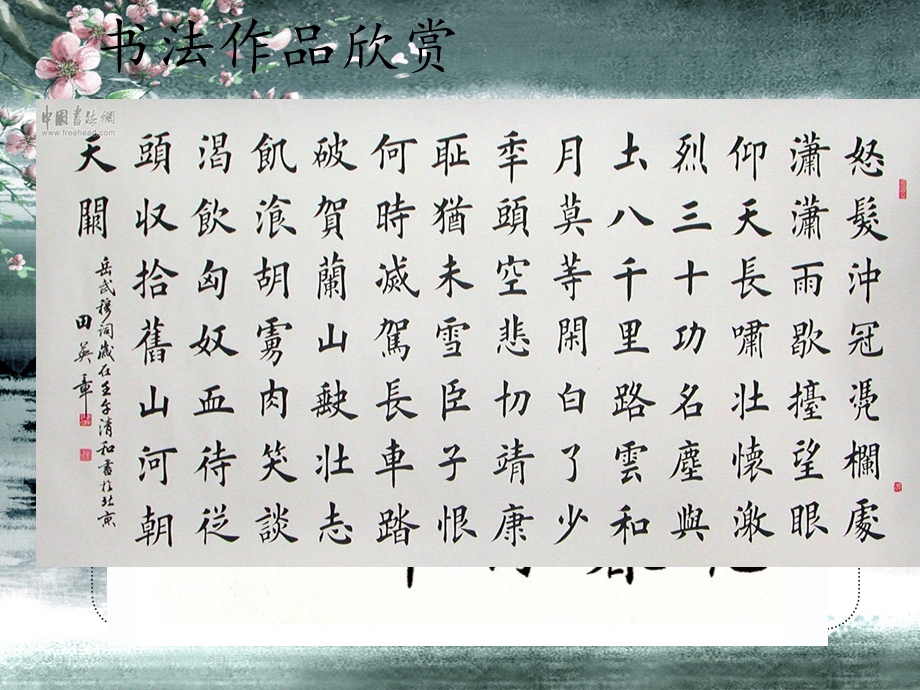 书法作品欣赏
中国书法網
www.freehead.com
怒髮沖冠凴欄處
瀟瀟雨歇擡望眼
仰天長嘯壯懷激
烈三十功名塵與
土八千里路雲和
月莫等閑白了少
秊頭空悲切靖康
耻猶未雪臣子恨
何時滅駕長車踏
破賀蘭山缺壯志
飢飡胡虜肉笑談
渴飲匈奴血待從
頭収拾舊山河朝
天闕
岳武穆詞歲在壬午清和書於北京
田英章